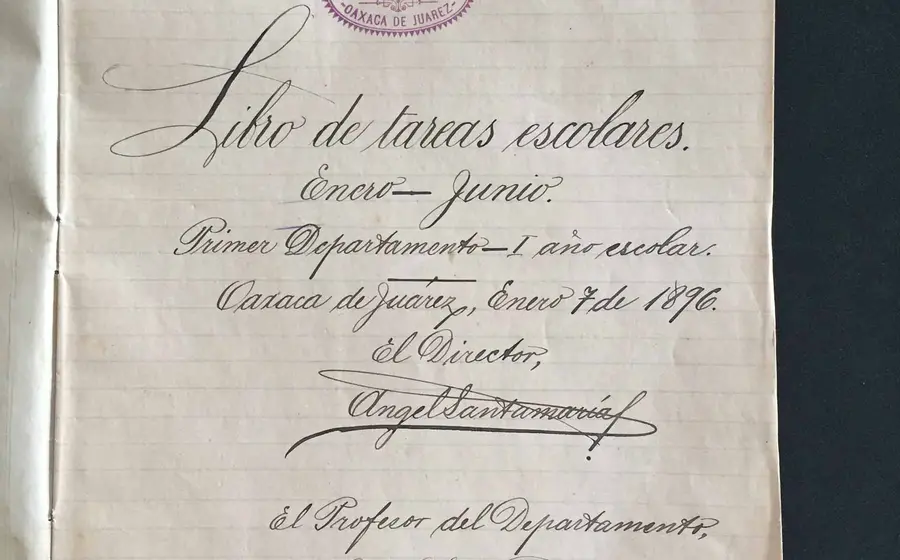 -OAXACA DE JUAREZ-
Libro de tareas escolares.
Enero — Junio.
Primer Departamento — I año escolar.
Oaxaca de Juárez, Enero 7 de 1896.
El Director,
Angel Santamaría
El Profesor del Departamento,